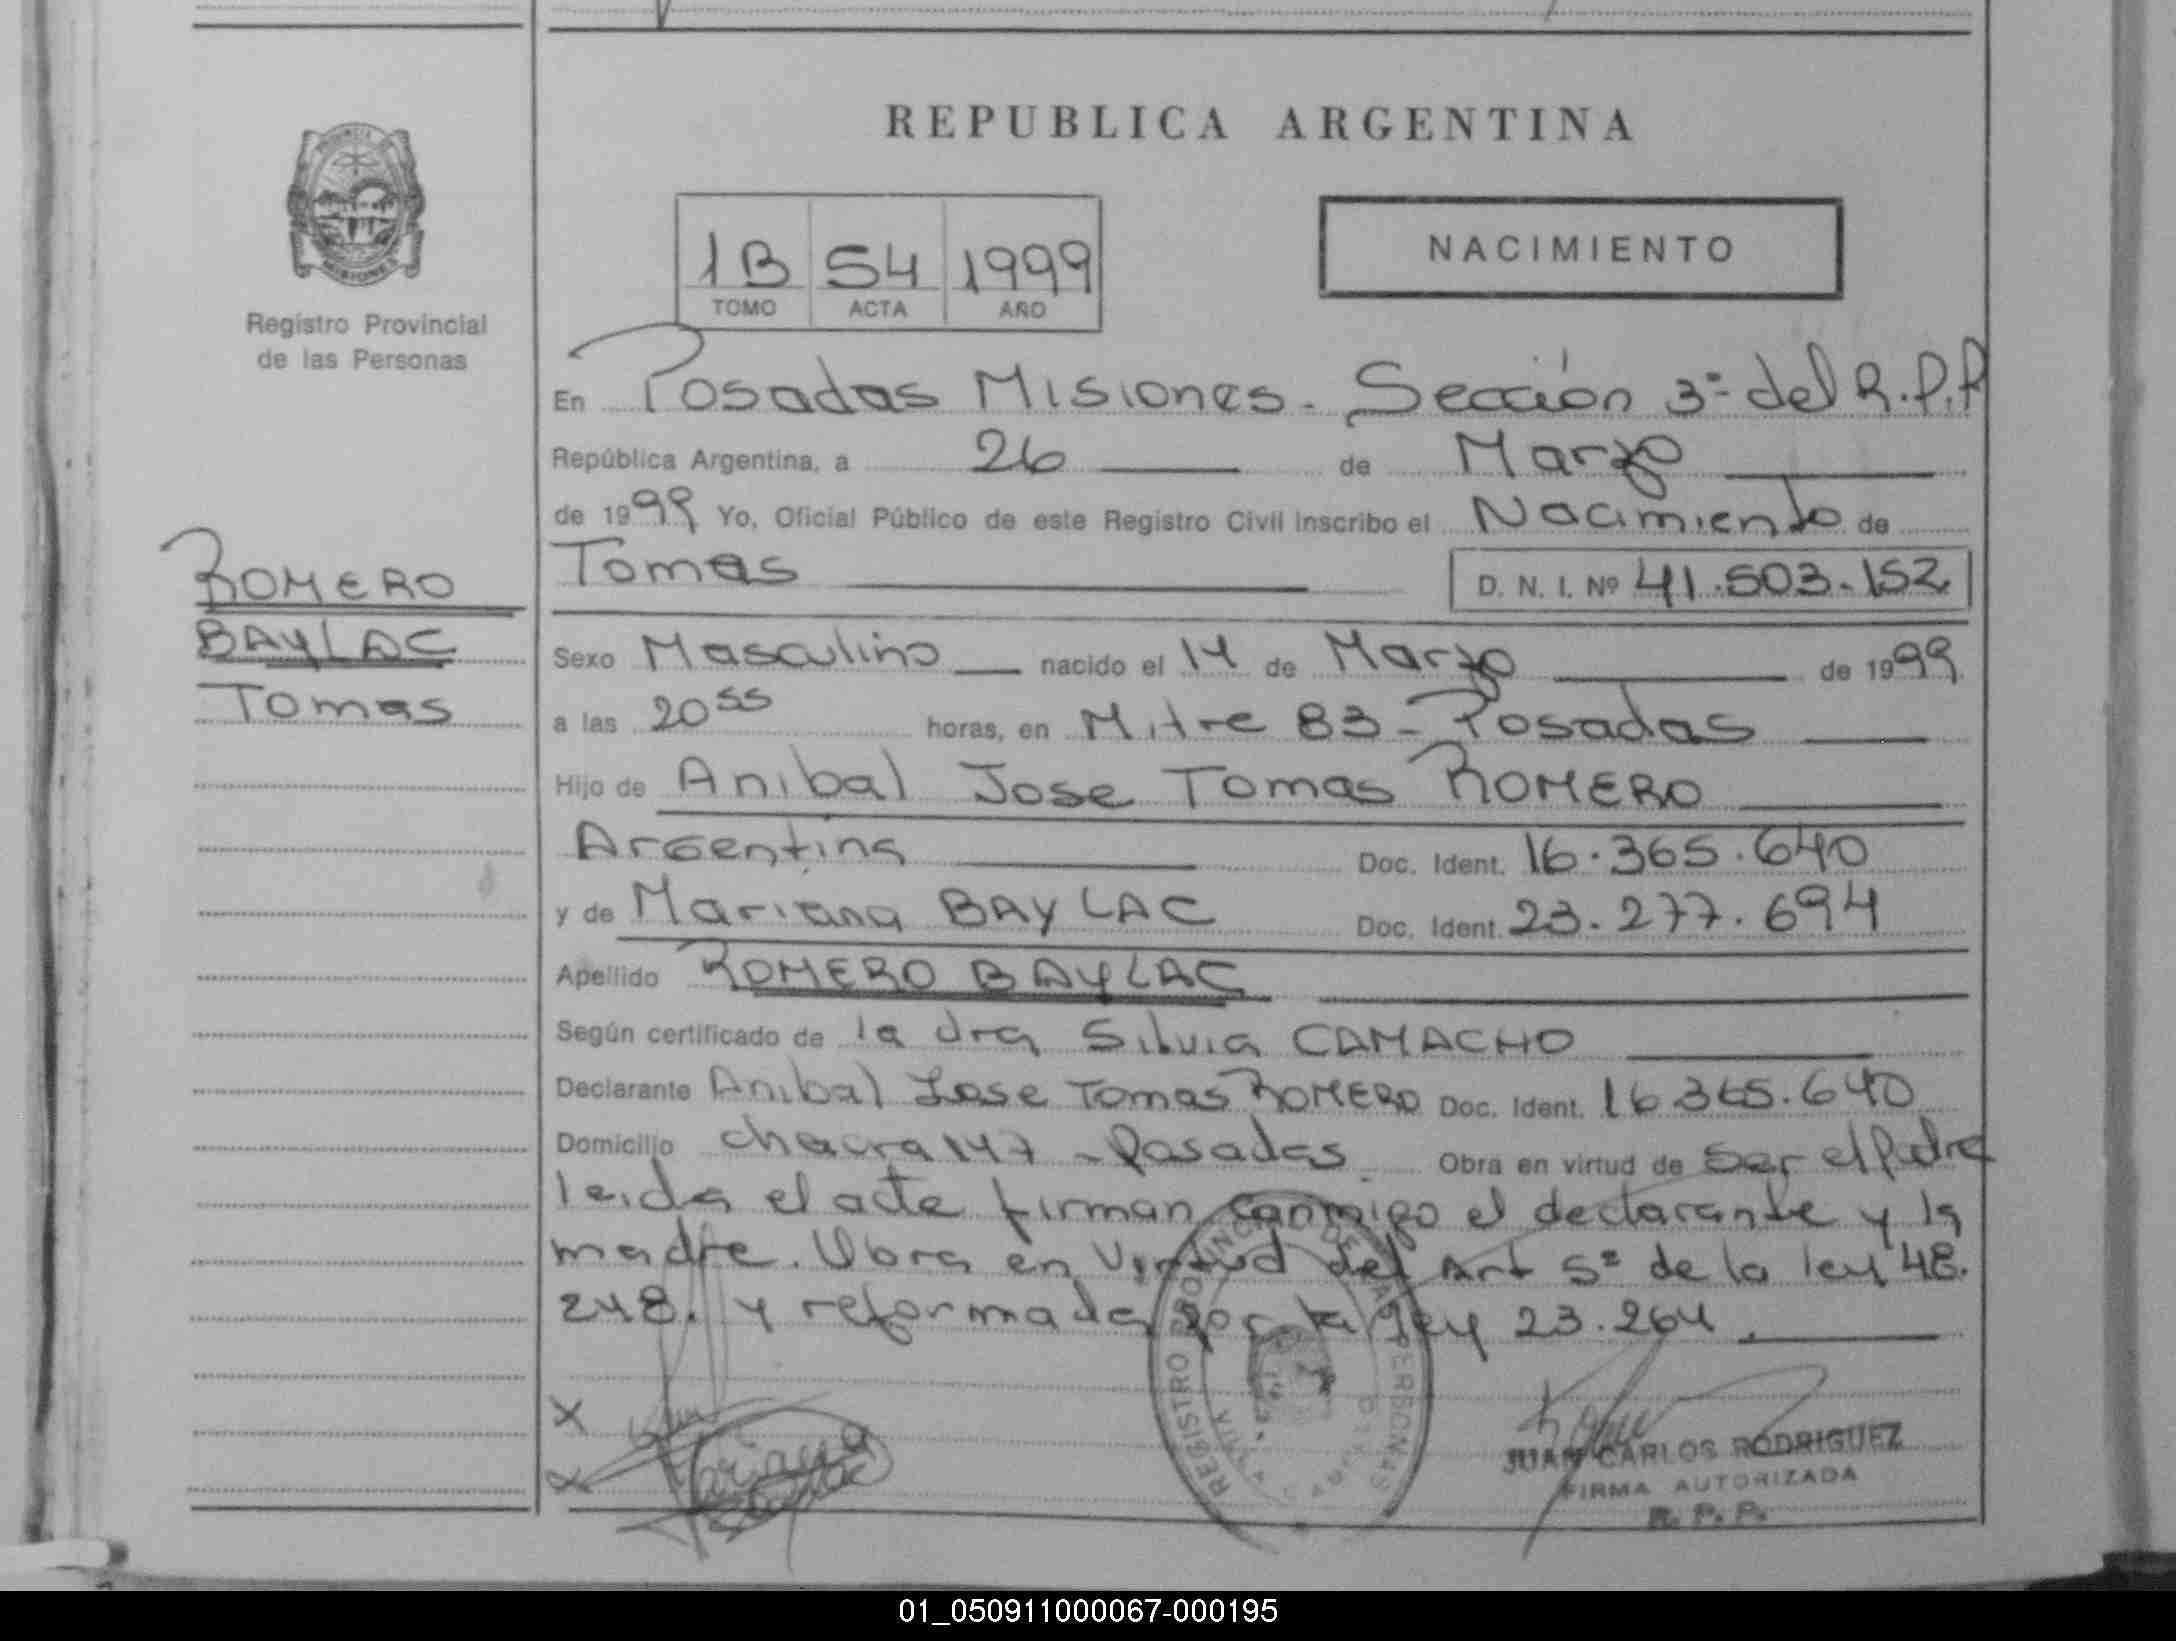 REPUBLICA ARGENTINA
PROVINCIA
MISIONES
Registro Provincial
de las Personas
1B 54 1999
TOMO ACTA AÑO
NACIMIENTO
En Posadas Misiones. Sección 3ª del R.P.P
República Argentina, a 26 de Marzo
de 1999 Yo, Oficial Público de este Registro Civil inscribo el Nacimiento de
Tomas D. N. I. Nº 41.503.152
ROMERO
BAYLAC
Tomas
Sexo Masculino nacido el 14 de Marzo de 1999
a las 20⁵⁵ horas, en Mitre 83 - Posadas
Hijo de Anibal Jose Tomas ROMERO
Argentina Doc. Ident. 16.365.640
y de Mariana BAYLAC Doc. Ident. 23.277.694
Apellido ROMERO BAYLAC
Según certificado de la dra Silvia CAMACHO
Declarante Anibal Jose Tomas ROMERO Doc. Ident. 16.365.640
Domicilio chacra 147 - Posadas. Obra en virtud de Ser el Padre
leida el acta firman conmigo el declarante y la
madre. Obra en Virtud del Art 5º de la ley 48.
248. y reformada por la ley 23.264.
X
X
REGISTRO PROVINCIAL DE LAS PERSONAS
JUAN CARLOS RODRIGUEZ
FIRMA AUTORIZADA
R. P. P.
01_050911000067-000195